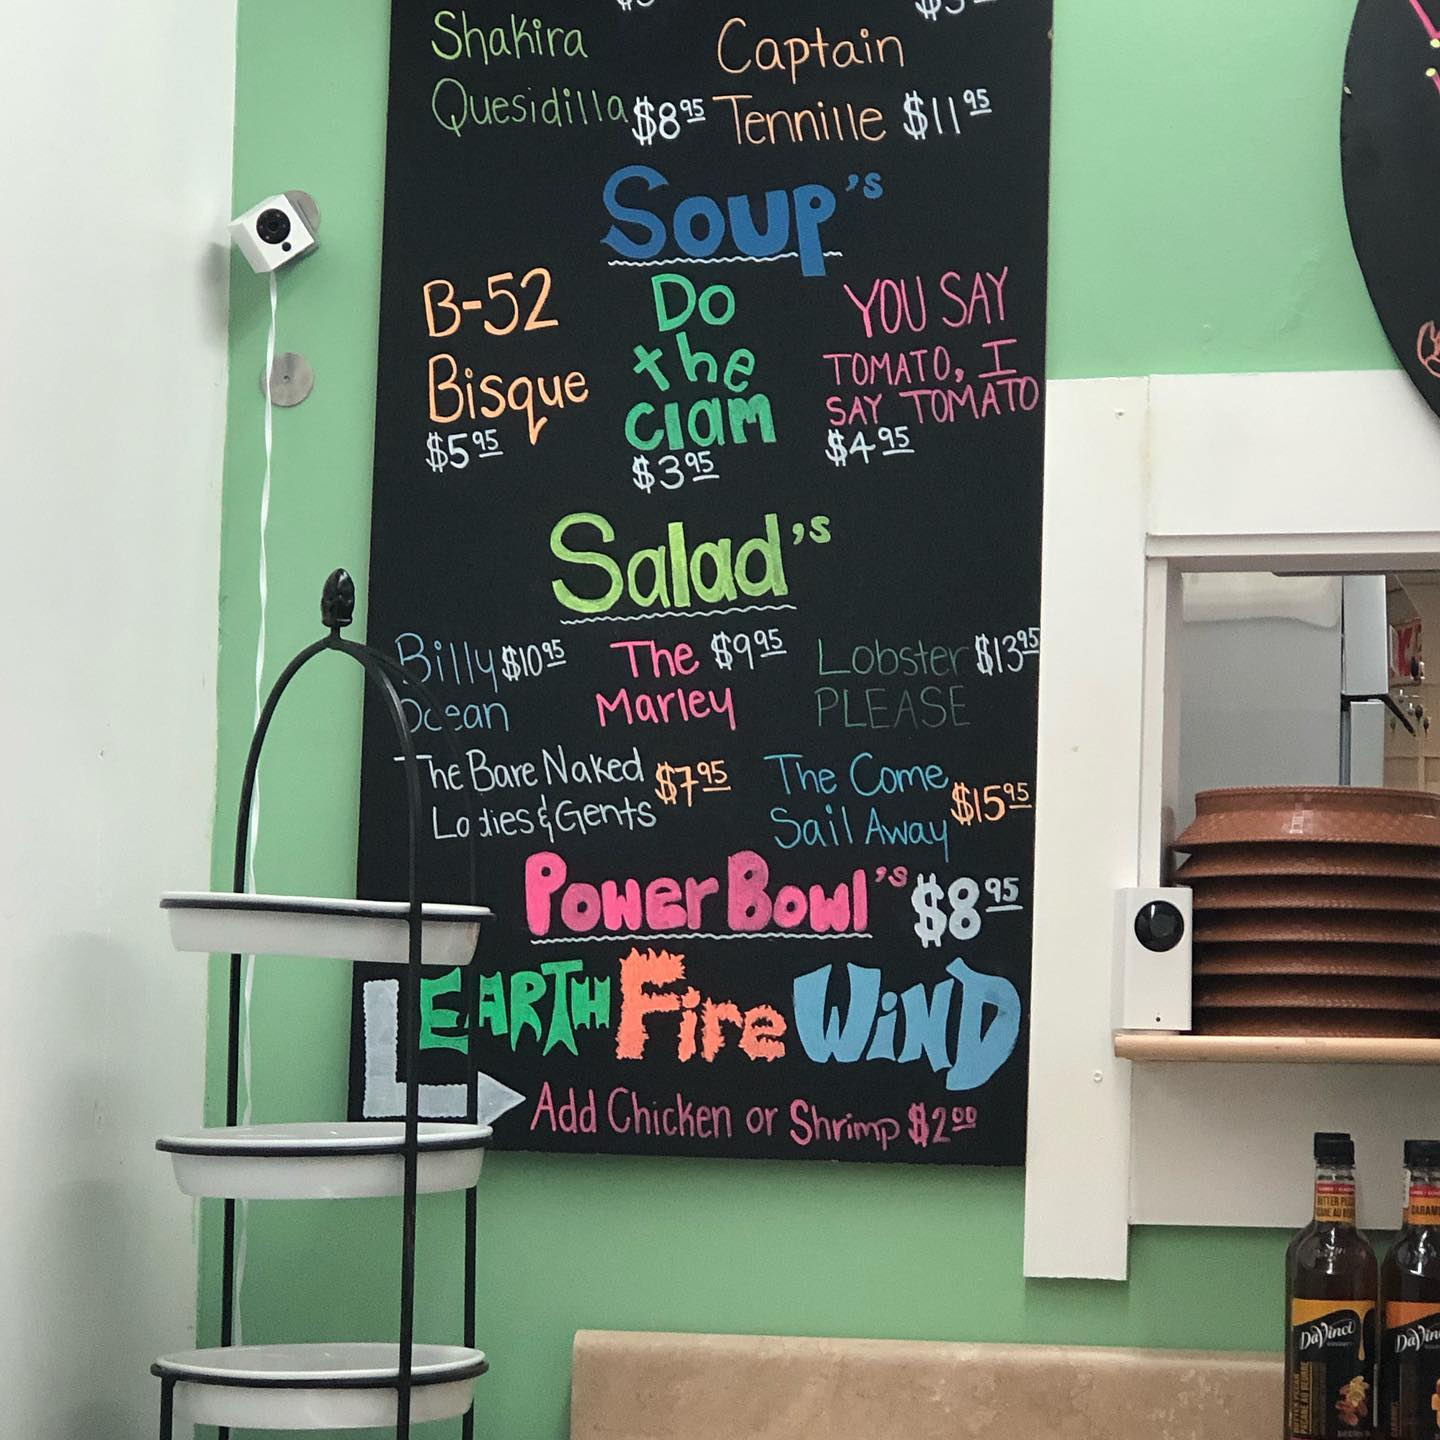 Shakira Captain
Quesidilla $8.95 Tennille $11.95
Soup's
B-52
Bisque
$5.95
Do
the
clam
$3.95
YOU SAY
TOMATO, I
SAY TOMATO
$4.95
Salad's
Billy $10.95
Ocean
The $9.95
Marley
Lobster $13.95
PLEASE
The Bare Naked
Ladies & Gents $7.95
The Come
Sail Away $15.95
Power Bowl's $8.95
EARTH Fire WiND
Add Chicken or Shrimp $2.00
DaVinci
DaVinci